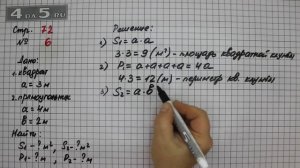 4DA5.RU
Стр. 72
№ 6
Дано:
1. квадрат
a = 3м
2. прямоугольник
a = 4м
b = 2м
Найти:
S₁ - ? м², S₂ - ? м²
P₁ - ? м, P₂ - ? м
Решение:
1) S₁ = a · a
3·3 = 9 (м²) - площадь квадратной
2) P₁ = a + a + a + a = 4a
4·3 = 12 (м) - периметр кв.
3) S₂ = a · b